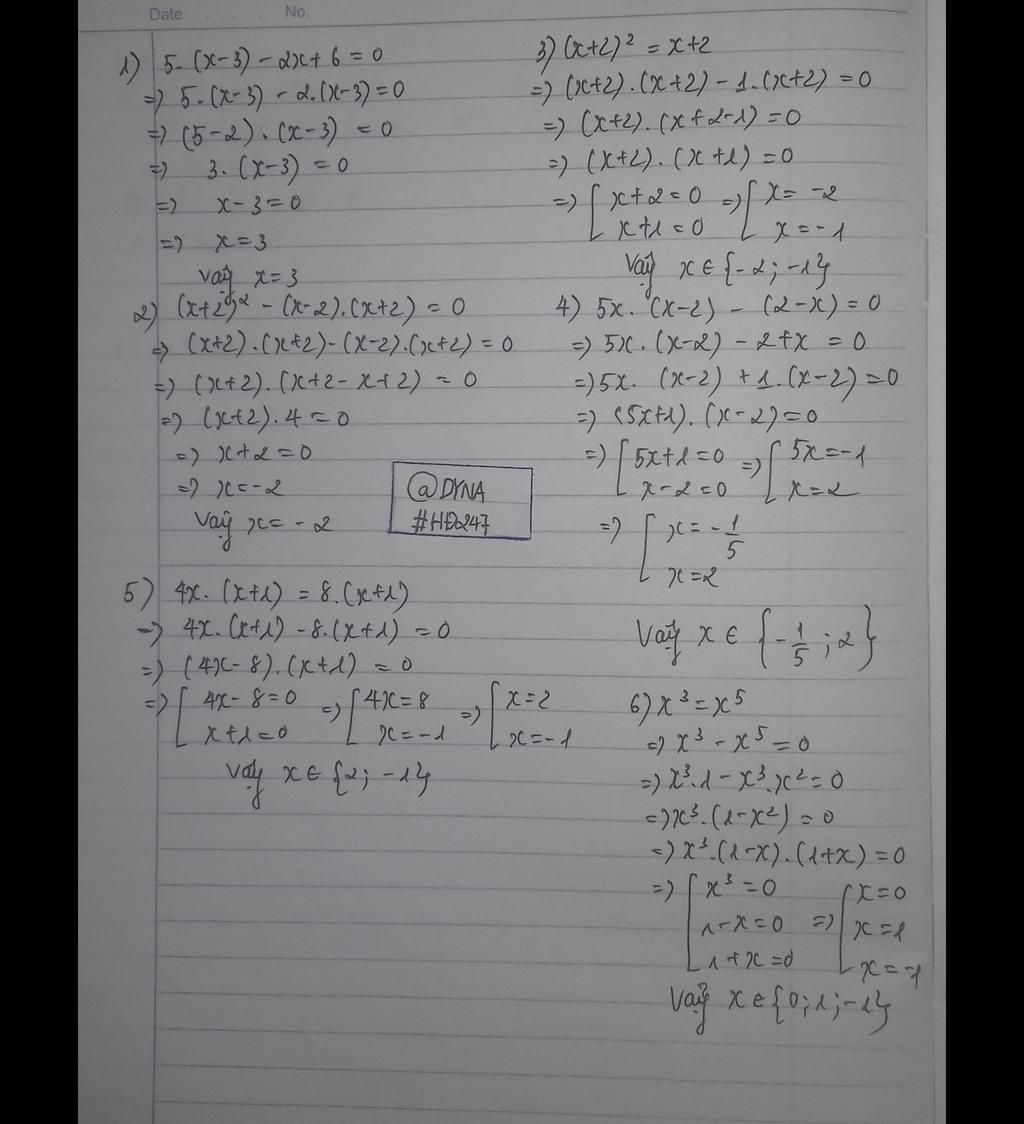 Date No.
1) 5.(x-3) - 2x + 6 = 0
=> 5.(x-3) - 2.(x-3) = 0
=> (5-2).(x-3) = 0
=> 3.(x-3) = 0
=> x-3=0
=> x=3
Vậy x=3
2) (x+2)² - (x-2).(x+2) = 0
=> (x+2).(x+2) - (x-2).(x+2) = 0
=> (x+2).(x+2-x+2) = 0
=> (x+2).4 = 0
=> x+2 = 0
=> x=-2
Vậy x=-2
@DYNA
#HĐ247
5) 4x.(x+1) = 8.(x+1)
=> 4x.(x+1) - 8.(x+1) = 0
=> (4x-8).(x+1) = 0
=> [ 4x-8=0 => [ 4x=8 => [ x=2
x+1=0 x=-1 x=-1
Vậy x ∈ {2; -1}
3) (x+2)² = x+2
=> (x+2).(x+2) - 1.(x+2) = 0
=> (x+2).(x+2-1) = 0
=> (x+2).(x+1) = 0
=> [ x+2=0 => [ x=-2
x+1=0 x=-1
Vậy x ∈ {-2; -1}
4) 5x.(x-2) - (2-x) = 0
=> 5x.(x-2) - 2+x = 0
=> 5x.(x-2) + 1.(x-2) = 0
=> (5x+1).(x-2) = 0
=> [ 5x+1=0 => [ 5x=-1
x-2=0 x=2
=> [ x=-1/5
x=2
Vậy x ∈ {-1/5; 2}
6) x³ = x⁵
=> x³ - x⁵ = 0
=> x³.1 - x³.x² = 0
=> x³.(1-x²) = 0
=> x³.(1-x).(1+x) = 0
=> [ x³=0 [ x=0
1-x=0 => x=1
1+x=0 x=-1
Vậy x ∈ {0; 1; -1}